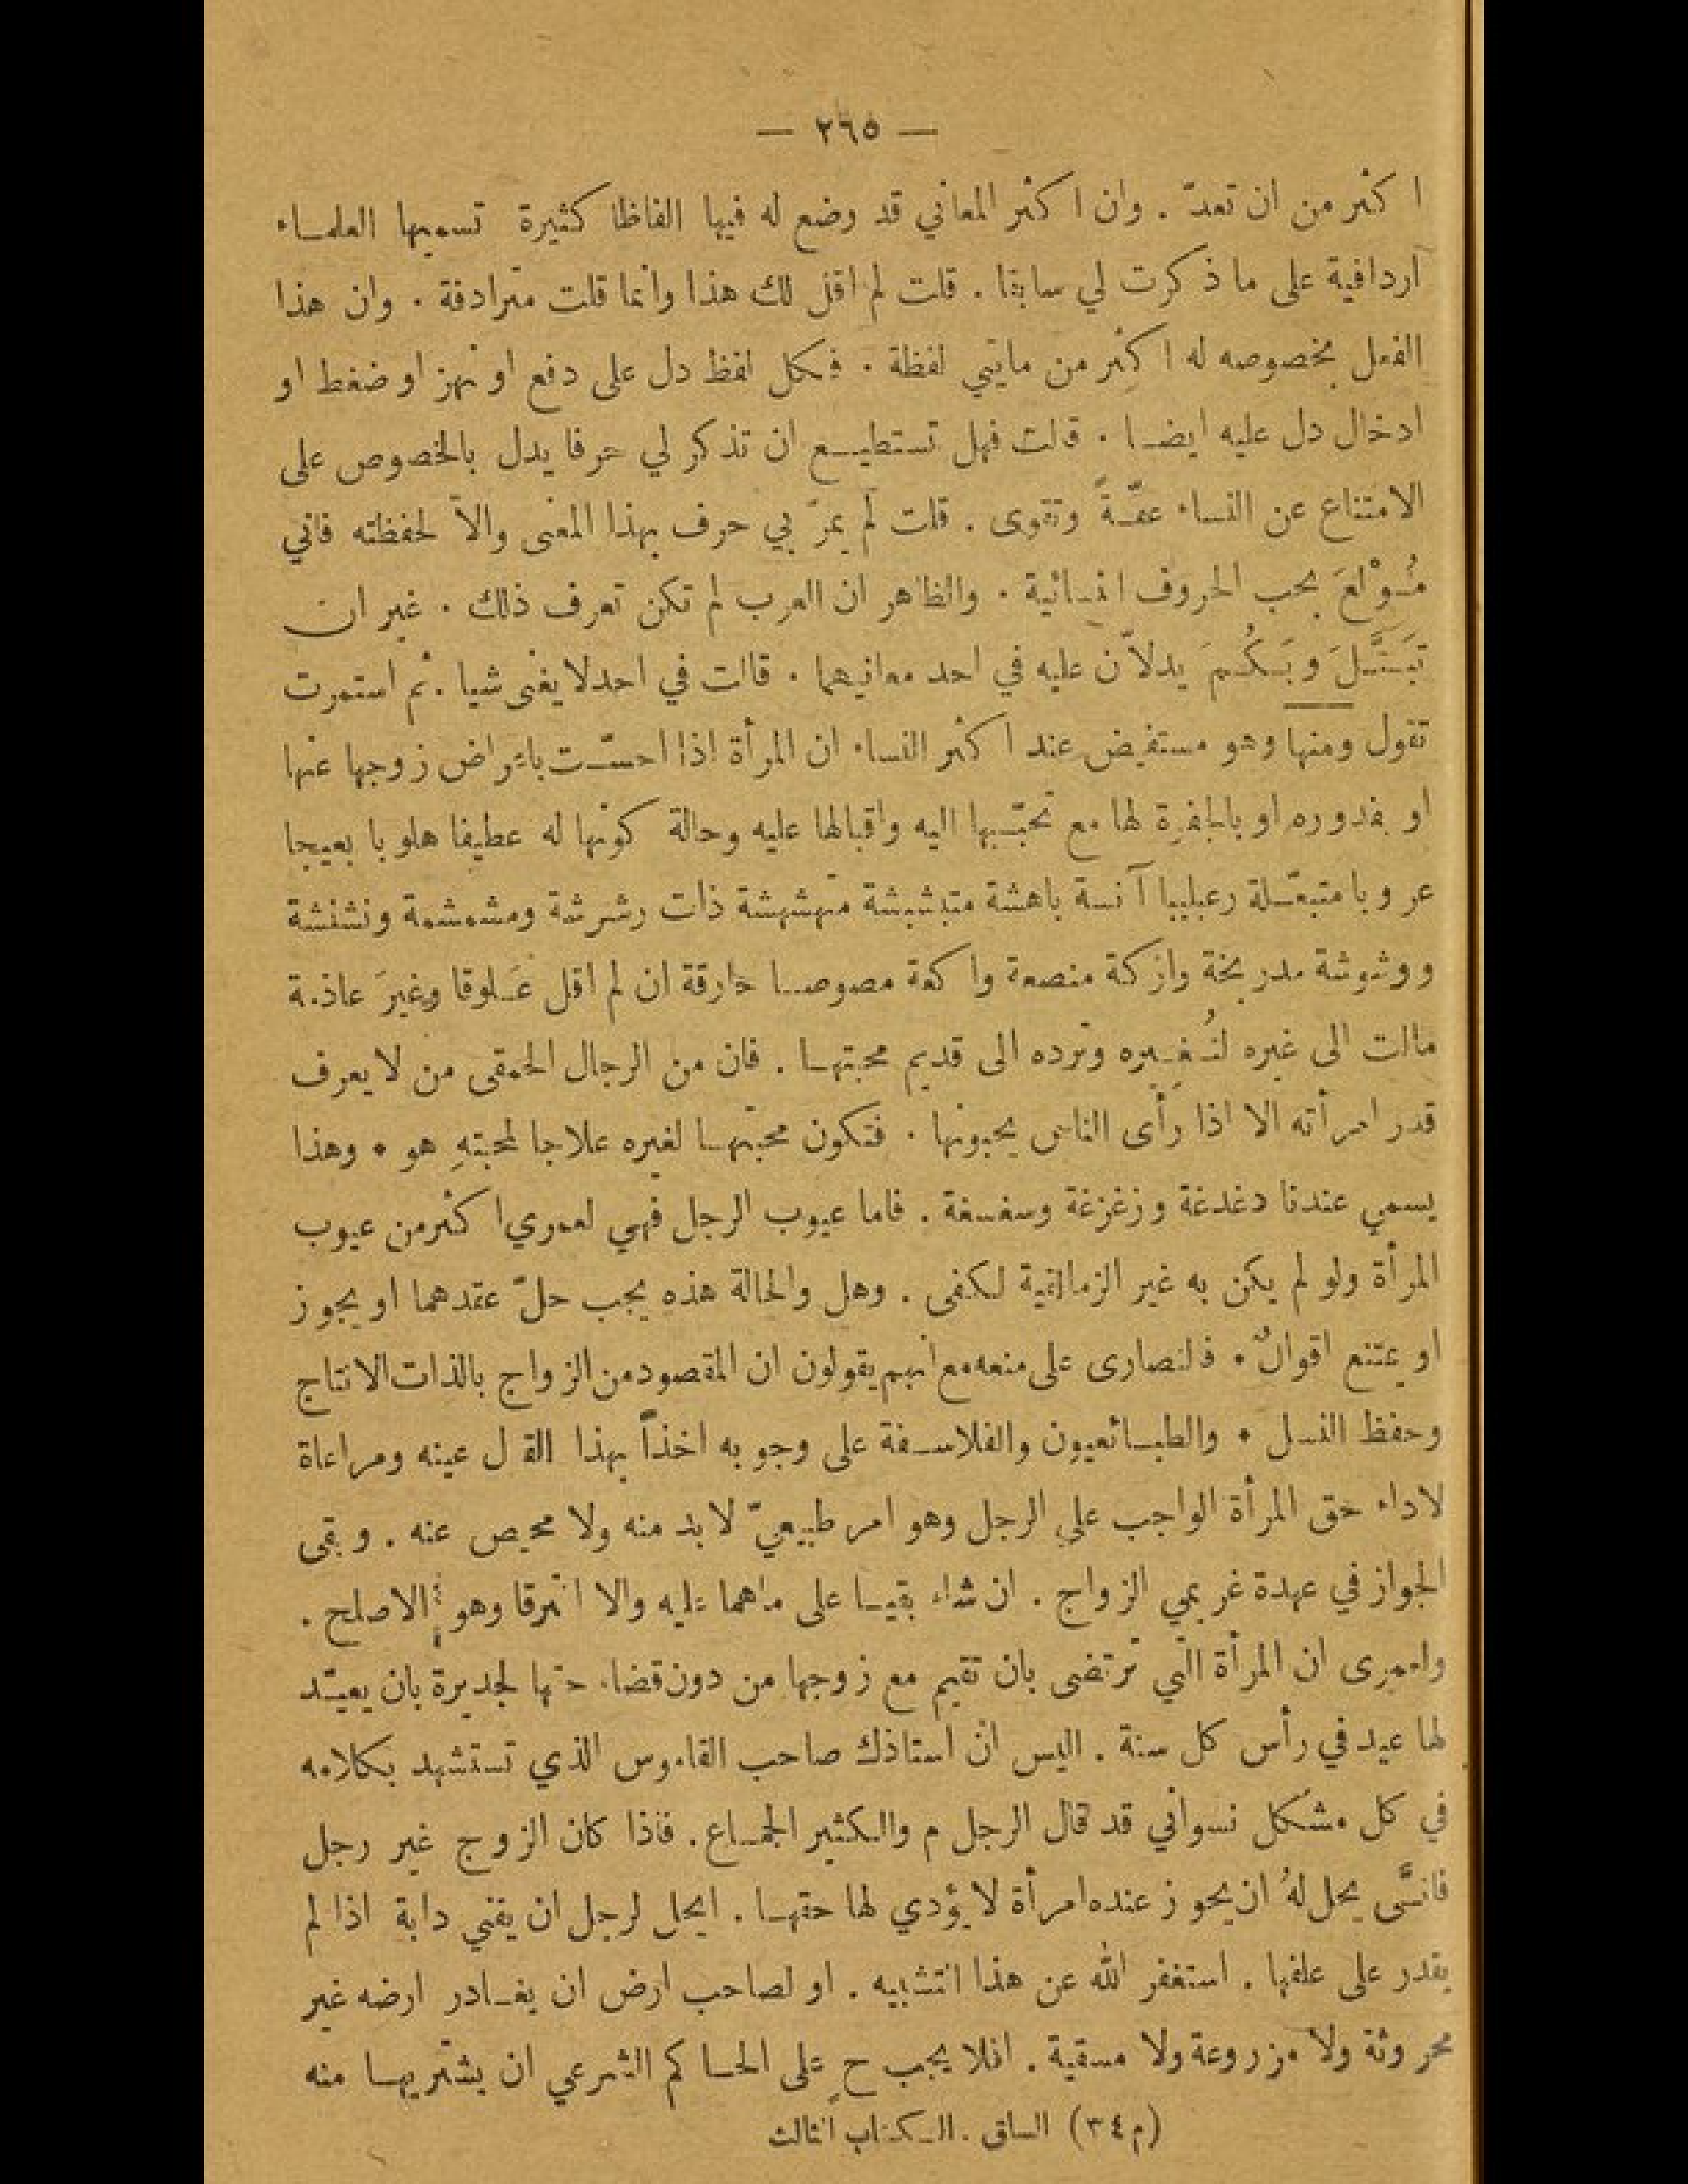 — ٢٦٥ —
اكثر من ان تعدّ . وان اكثر المعاني قد وضع له فيها الفاظا كثيرة تسميها العلماء
اردافية على ما ذكرت لي سابقا . قلت لم اقل لك هذا وانما قلت مترادفة . وان هذا
الفعل بخصوصه له اكثر من مايتي لفظة . فكل لفظ دل على دفع او نهز او ضغط او
ادخال دل عليه ايضا . قالت فهل تستطيع ان تذكر لي حرفا يدل بالخصوص على
الامتناع عن النساء عفّةً وتقوى . قلت لم يمرّ بي حرف بهذا المعنى والاّ لحفظته فاني
مُوْلَع بحب الحروف النسائية . والظاهر ان العرب لم تكن تعرف ذلك . غير ان
تَبَتَّلَ وبَكُمَ يدلاّن عليه في احد معانيهما . قالت في احد لا يغنى شيا . ثم استمرت
تقول ومنها وهو مستفيض عند اكثر النساء ان المرأة اذا احسّت باعراض زوجها عنها
او بفدوره او بالبلغرة لها مع تحبّبها اليه واقبالها عليه وحالة كونها له عطيفا هلوبا بعيجا
عروبا متبعّلة رعبليبا آنسة باهشة متبشبشة متهشهشة ذات رشرشة ومشمشة ونشنشة
ووشوشة مدربخة وازكة منصعة واكعة مصوصا خارقة ان لم اقل عَلوقا وغيرَ عاذمة
مالت الى غيره لتُغيره وترده الى قديم محبتها . فان من الرجال الحمقى من لا يعرف
قدر امرأته الا اذا رأى الناس يحبونها . فتكون محبّتها لغيره علاجا لمحبتهِ هو • وهذا
يسمي عندنا دغدغة وزغزغة وسغسغة . فاما عيوب الرجل فهي لعمري اكثر من عيوب
المرأة ولو لم يكن به غير الزمالقية لكفى . وهل والحالة هذه يجب حلّ عقدهما او يجوز
او يمتنع اقوالٌ • فالنصارى على منعه مع انهم يقولون ان المقصود من الزواج بالذات الانتاج
وحفظ النسل • والطبائعيون والفلاسفة على وجوبه اخذاً بهذا القول عينه ومراعاة
لاداء حق المرأة الواجب على الرجل وهو امر طبيعيّ لا بد منه ولا محيص عنه . وبقى
الجواز في عهدة غريمي الزواج . ان شاء بقيا على ماهما عليه والا افترقا وهو الاصلح .
ولعمرى ان المرأة التي ترتضى بان تقيم مع زوجها من دون قضاء حقها لجديرة بان يعيّد
لها عيد في رأس كل سنة . اليس ان استاذك صاحب القاموس الذي تستشهد بكلامه
في كل مشكل نسواني قد قال الرجل م والكثير الجماع . فاذا كان الزوج غير رجل
فانَّى يحل لهُ ان يحوز عنده امرأة لا يؤدي لها حقها . ايحل لرجل ان يقني دابة اذا لم
يقدر على علفها . استغفر الله عن هذا التشبيه . او لصاحب ارض ان يغادر ارضه غير
محروثة ولا مزروعة ولا مسقية . افلا يجب ح على الحاكم الشرعي ان يشتريها منه
(م ٣٤) الساق . الكتاب الثالث